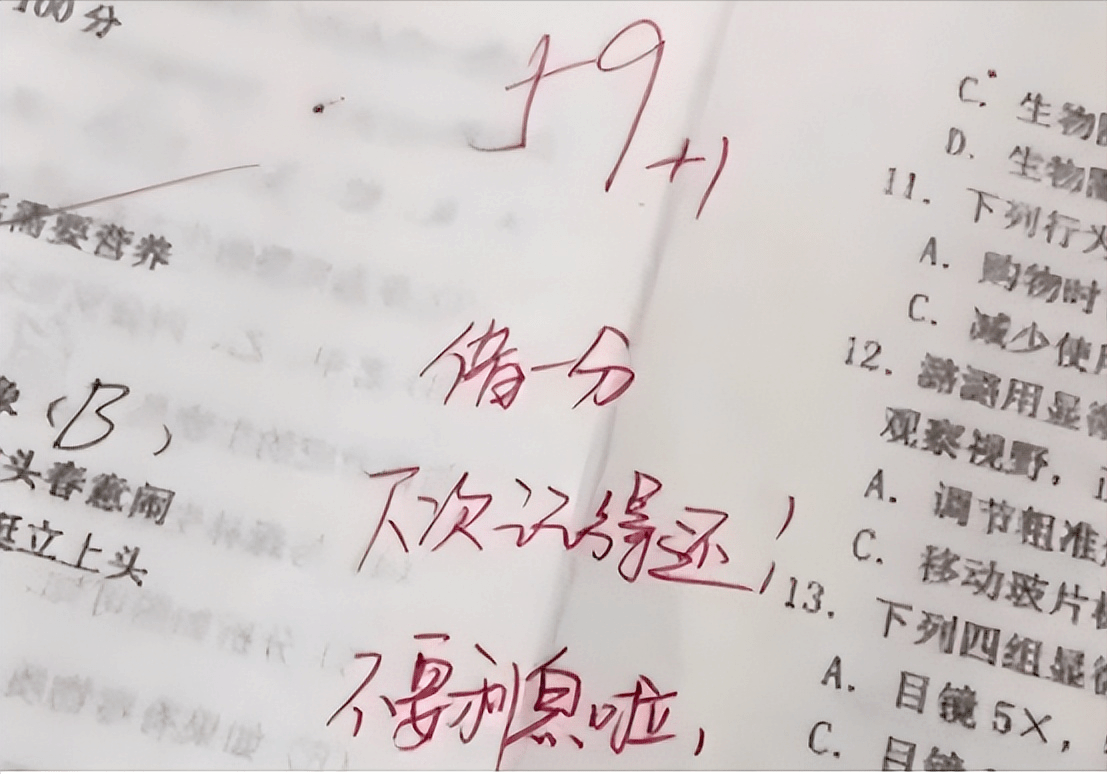 100分
59
+1
需要营养
借一分
(B)
头春意闹
下次记得还！
立上头
不要利息啦，
C. 生物
D. 生物
11. 下列行为
A. 购物时
C. 减少使用
12. 潞潞用显微
观察视野，正
A. 调节粗准
C. 移动玻片
13. 下列四组显微
A. 目镜5×，
C. 目镜